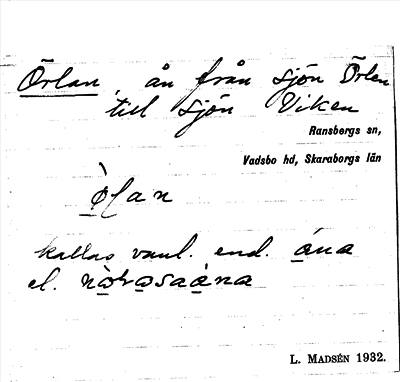 Örlan, ån från sjön Örlen
till sjön Viken
Ransbergs sn,
Vadsbo hd, Skaraborgs län
kallas vanl. end. åna
el.
L. MADSÉN 1932.